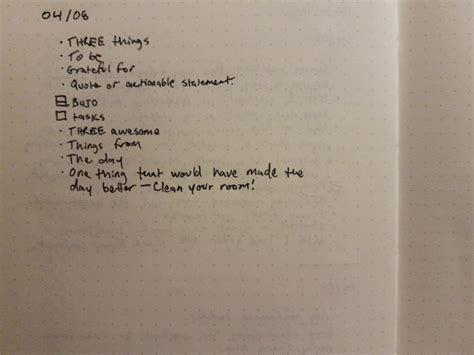 04/08
· THREE things
· To be
· Grateful for
· Quote or actionable statement.
BUJO
tasks
· THREE awesome
· Things from
· The day
· One thing that would have made the
day better – Clean your room!